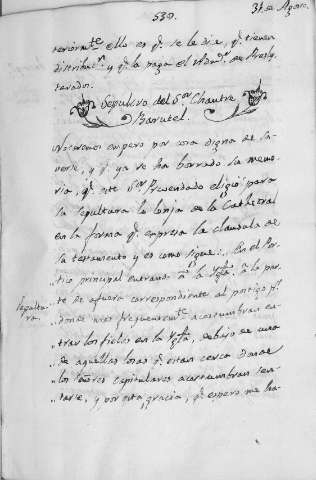 539.
31 de Agosto.
teriormte. ello es qe. se le dia, qe. tienen
distribucn. y qe. la paga el Admr. de Aresty
tarados.
Sepulcro del Sor. Chantre
Barutel.
Notaremos empero por cosa digna de sa-
verse, y qe. ya se ha borrado la memo-
ria, qe. este Sor. Arcendado eligió para
su sepultura la lonja de la Cathedral
en la forma qe. expresa la clausula de
su testamento y es como sigue: En el Por-
tico principal entrando á la Yglª. á la par-
te de afuera correspondiente al portigo pr.
Sepultu-
ra.
donde mas frequentemte. acostumbran en-
trar los fieles en la Yglª. debajo de una
de aquellas losas qe. estan cerca donde
los Señores Capitulares acostumbran sen-
tarse, y por esta gracia, qe. espero me ha-